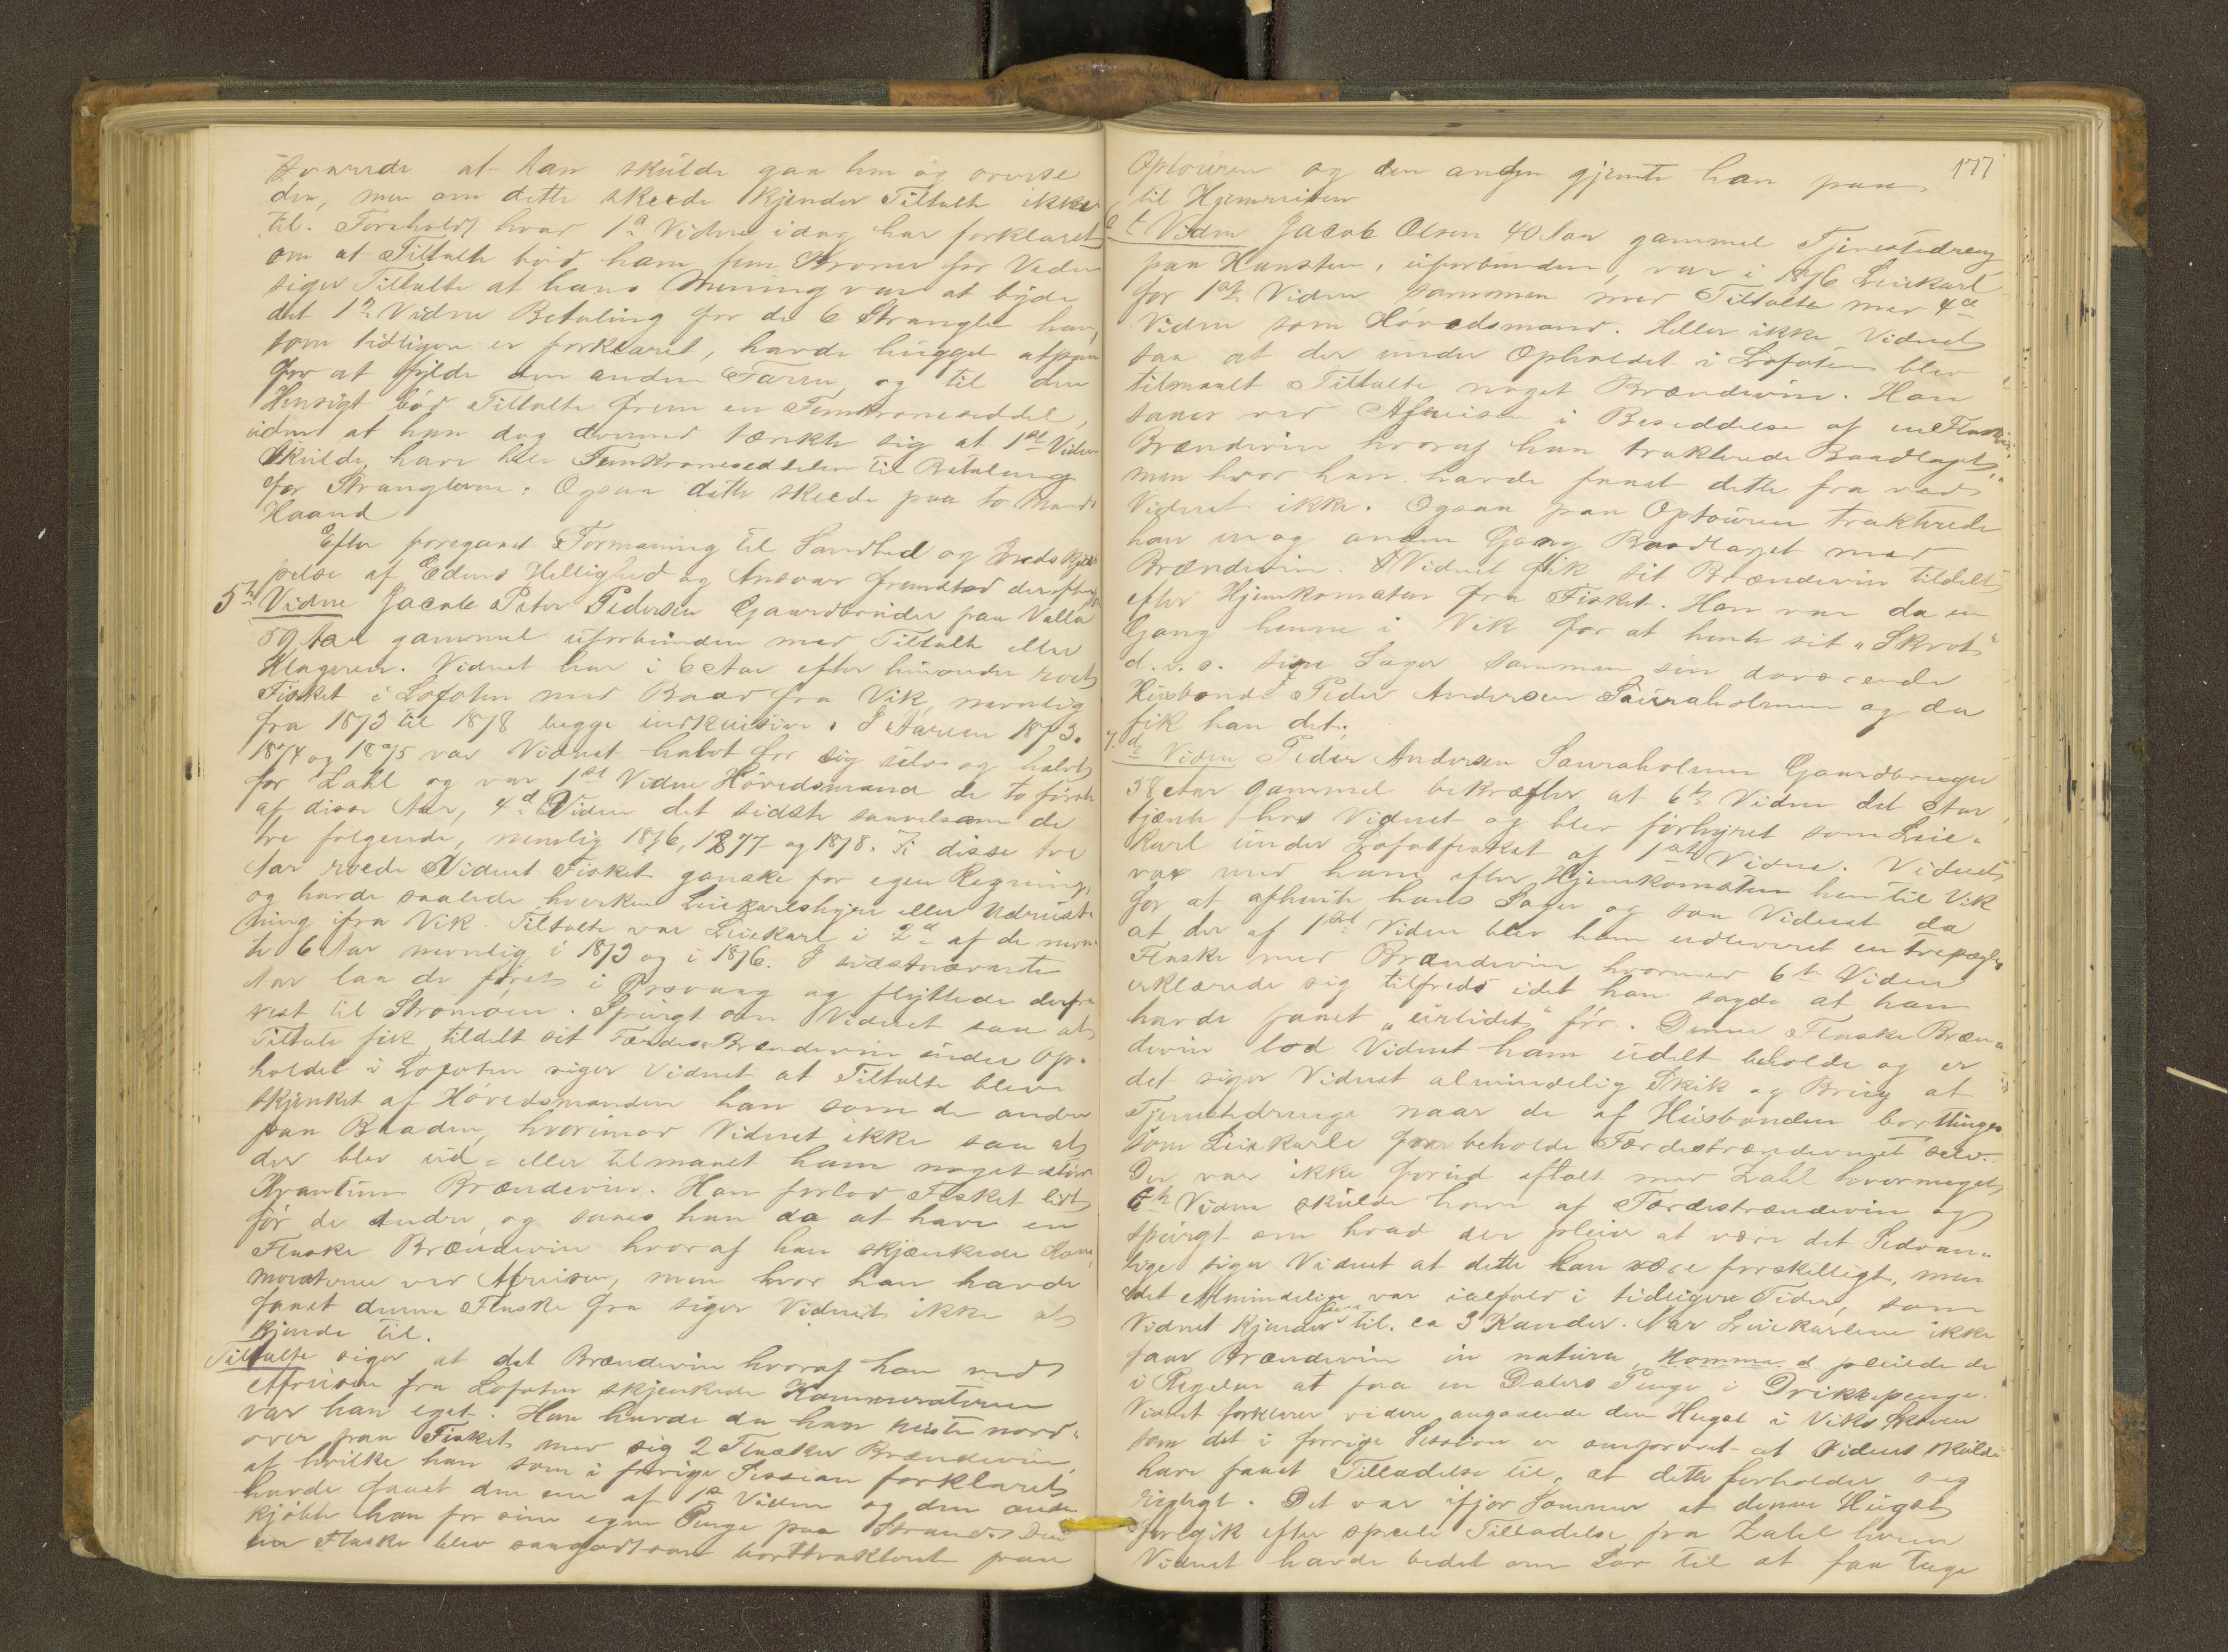 svarede at han skulde gaa hen og overse
den, men om dette skeede kjender Tiltalte ikke
til. Foreholdt hvad 1ste Vidne idag har forklaret
om at Tiltalte bød ham fem Kroner for Veden
siger Tiltalte at hans Mening var at byde
det 1ste Vidne Betaling for de 6 Strangler han,
som tidligere er forklaret, havde hugget
for at fylde den anden Favn, og til den
Hensigt bød Tiltalte frem en Femkroneseddel,
uden at han dog dermed tænkte sig at 1ste Vidne
skulde have hele Femkronesedelen til Betaling
for Stranglerne. Ogsaa dette skeede paa to Mands
Haand
Efter foregaaet Formaning til Sandhed og Eds
pelse af Edens Hellighed og Ansvar fremstod derefter
5te Vidne Jacob Peter Pedersen Gaardbruder paa Valla
59 Aar gammel uforbunden med Tiltalte eller
Klageren. Vidnet har i 6 Aar efter hinanden roet
Fisket i Lofoten med Baad fra Vik, nemlig
fra 1873 til 1878 begge inklusive. I Aarene 1873.
1874 og 1875 var Vidnet halvt for sig selv og halvt
for Zahl og var 1ste Vidne Høvedsmand de to første
af disse Aar, 4de Vidne det sidste saavelsom de
tre følgende, nemlig 1876, 1877 og 1878. I disse tre
Aar roede Vidnet Fisket ganske for egen Regning,
og havde saalede hverken Leiekarlshyre eller Udrust-
ning ifra Vik. Tiltalte var Leiekarl i 2de af de nævn
te 6 Aar nemlig i 1873 og i 1876. I sidstnævnte
Aar laa de først i Brovaag og flyttede derfra
vest til Strømøen. Spurgt om Vidnet saa at
Tiltalte fik tildelt sit Færdes Brændevin under Op-
holdet i Lofoten siger Vidnet at Tiltalte blev
skjenket af Høvedsmanden han som de andre
paa Baaden, hvorimod Vidnet ikke saa at
der blev ud- eller tilmaalt ham noget større
Kvantum Brændevin. Han forlod Fisket lidt
før de andre, og saaes han da at have en
Flaske Brændevin hvoraf han skjænkede Kam
meraterne ved Afreisen, men hvor han havde
faaet denne Flaske fra siger Vidnet ikke at
kjende til.
Tiltalte siger at det Brændevin hvoraf han ved
Afreisen fra Lofoten skjenkede Kammeraterne
var han eget. Han havde da han reiste nord-
over paa Fisket med sig 2 Flasker Brændevin,
af hvilke han som i forrige Session forklaret
havde faaet den ene af 1ste Vidne og den anden
kjøbte han for sine egne Penge paa Strand. Den
ene Flaske blev saagodtsom borttrakteret paa
177
Optouren og den anden gjemte han paa
til Hjemreisen
6te Vidne Jacob Olsen 40 Aar gammel Tjenestedreng
paa Hansten, uforbunden, var i 1876 Leiekarl
for 1ste Vidne sammen med Tiltalte med 4de
Vidne som Høvedsmand. Heller ikke Vidnet
saa at der under Opholdet i Lofoten blev
tilmaalt Tiltalte noget Brændevin. Han
saaes ved Afreisen i Besiddelse af en Flaske
Brændevin hvoraf han trakterede Baadlaget,
men hvor han havde faaet dette fra ved
Vidnet ikke. Ogsaa paa Optouren trakterede
han en og anden Gang Baadlaget med
Brændevin. Vidnet fik sit Brændevin tildelt
efter Hjemkomsten fra Fisket. Han var da en
Gang henne i Vik for at hente sit "Skrot"
d.v.s. sine Sager sammen sin daværende
Husbond Peder Andersen Sauraholmen og da
fik han det.
7de Vidne Peder Andersen Sauraholmen Gaardbruger
58 Aar gammel bekræfter at 6te Vidne det Aar
tjente hos Vidnet og blev forhyret som Leie-
karl under Lofotfisket af 1ste Vidne. Vidnet
var med ham efter Hjemkomsten hen til Vik
for at afhente hans Sager og saa Vidnet da
at der af 1ste Vidne blev ham udleveret en trepægle
Flaske med Brændevin hvormed 6te Vidne
erklærede sig tilfreds idet han sagde at han
havde faaet "eirlidet" før. Denne Flaske Bræn-
devin lod Vidnet ham udelt beholde og er
det siger Vidnet almindelig Skik og Brug at
Tjenestedrenge naar de af Husbonden bortlinges
som Leiekarle faar beholde Færdesbrændevinet selv.
Der var ikke forud aftalt med Zahl hvormeget
6te Vidne skulde have af Færdesbrændevin og
spurgt om hvad der pleier at være det Sedvan-
lige siger Vidnet at dette kan være forskelligt, men
det Almindelige var ialfald i tidligere Tider, som
Vidnet kjender til. ca 3 Kander. Naar Leiekarlene ikke
faar Brændevin in natura, pleiede de
i Regelen at faa en Dalers Penge i Drikkepenge.
Vidnet forklarer videre angaaende den Hugst i Viks Skoven
som det i forrige Session er omforklaret at Vidnet skulde
have faaet Tilladelse til, at dette forholder sig
rigtigt. Det var ifjor Sommer at denne Hugst
foregik efter speciel Tilladelse fra Zahl hvem
Vidnet havde bedet om Lov til at faa tage